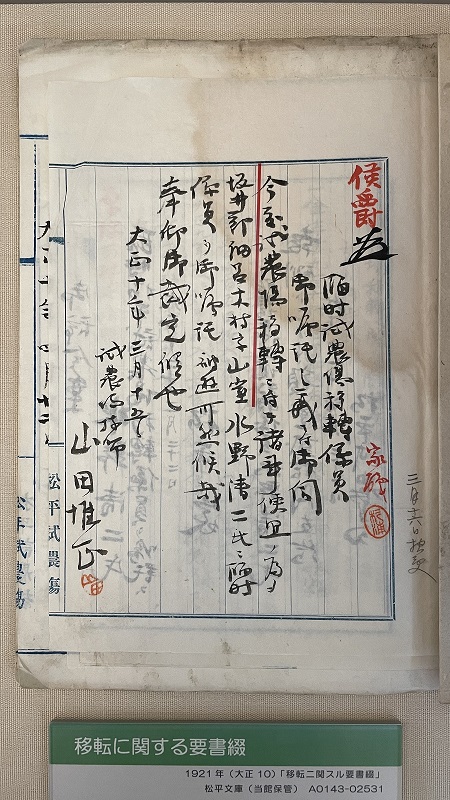 侯爵
臨時試農場移轉係員
御嘱託之義ニ付御伺
試農場移轉ニ付テ諸事便宜ノ為メ
坂井郡細呂木村字山室水野清二氏ニ臨時
係員ヲ御嘱託被遊可然候哉
奉仰御裁定候也
大正十年三月十五日
試農場技師
山田惟正
三月十六日
松平試農場
松平試農場
移転に関する要書綴
1921年(大正10)「移転ニ関スル要書綴」
松平文庫(当館保管) A0143-02531